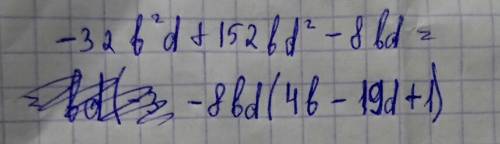 -32b²d + 152bd² - 8bd =
= -8bd(4b - 19d + 1)